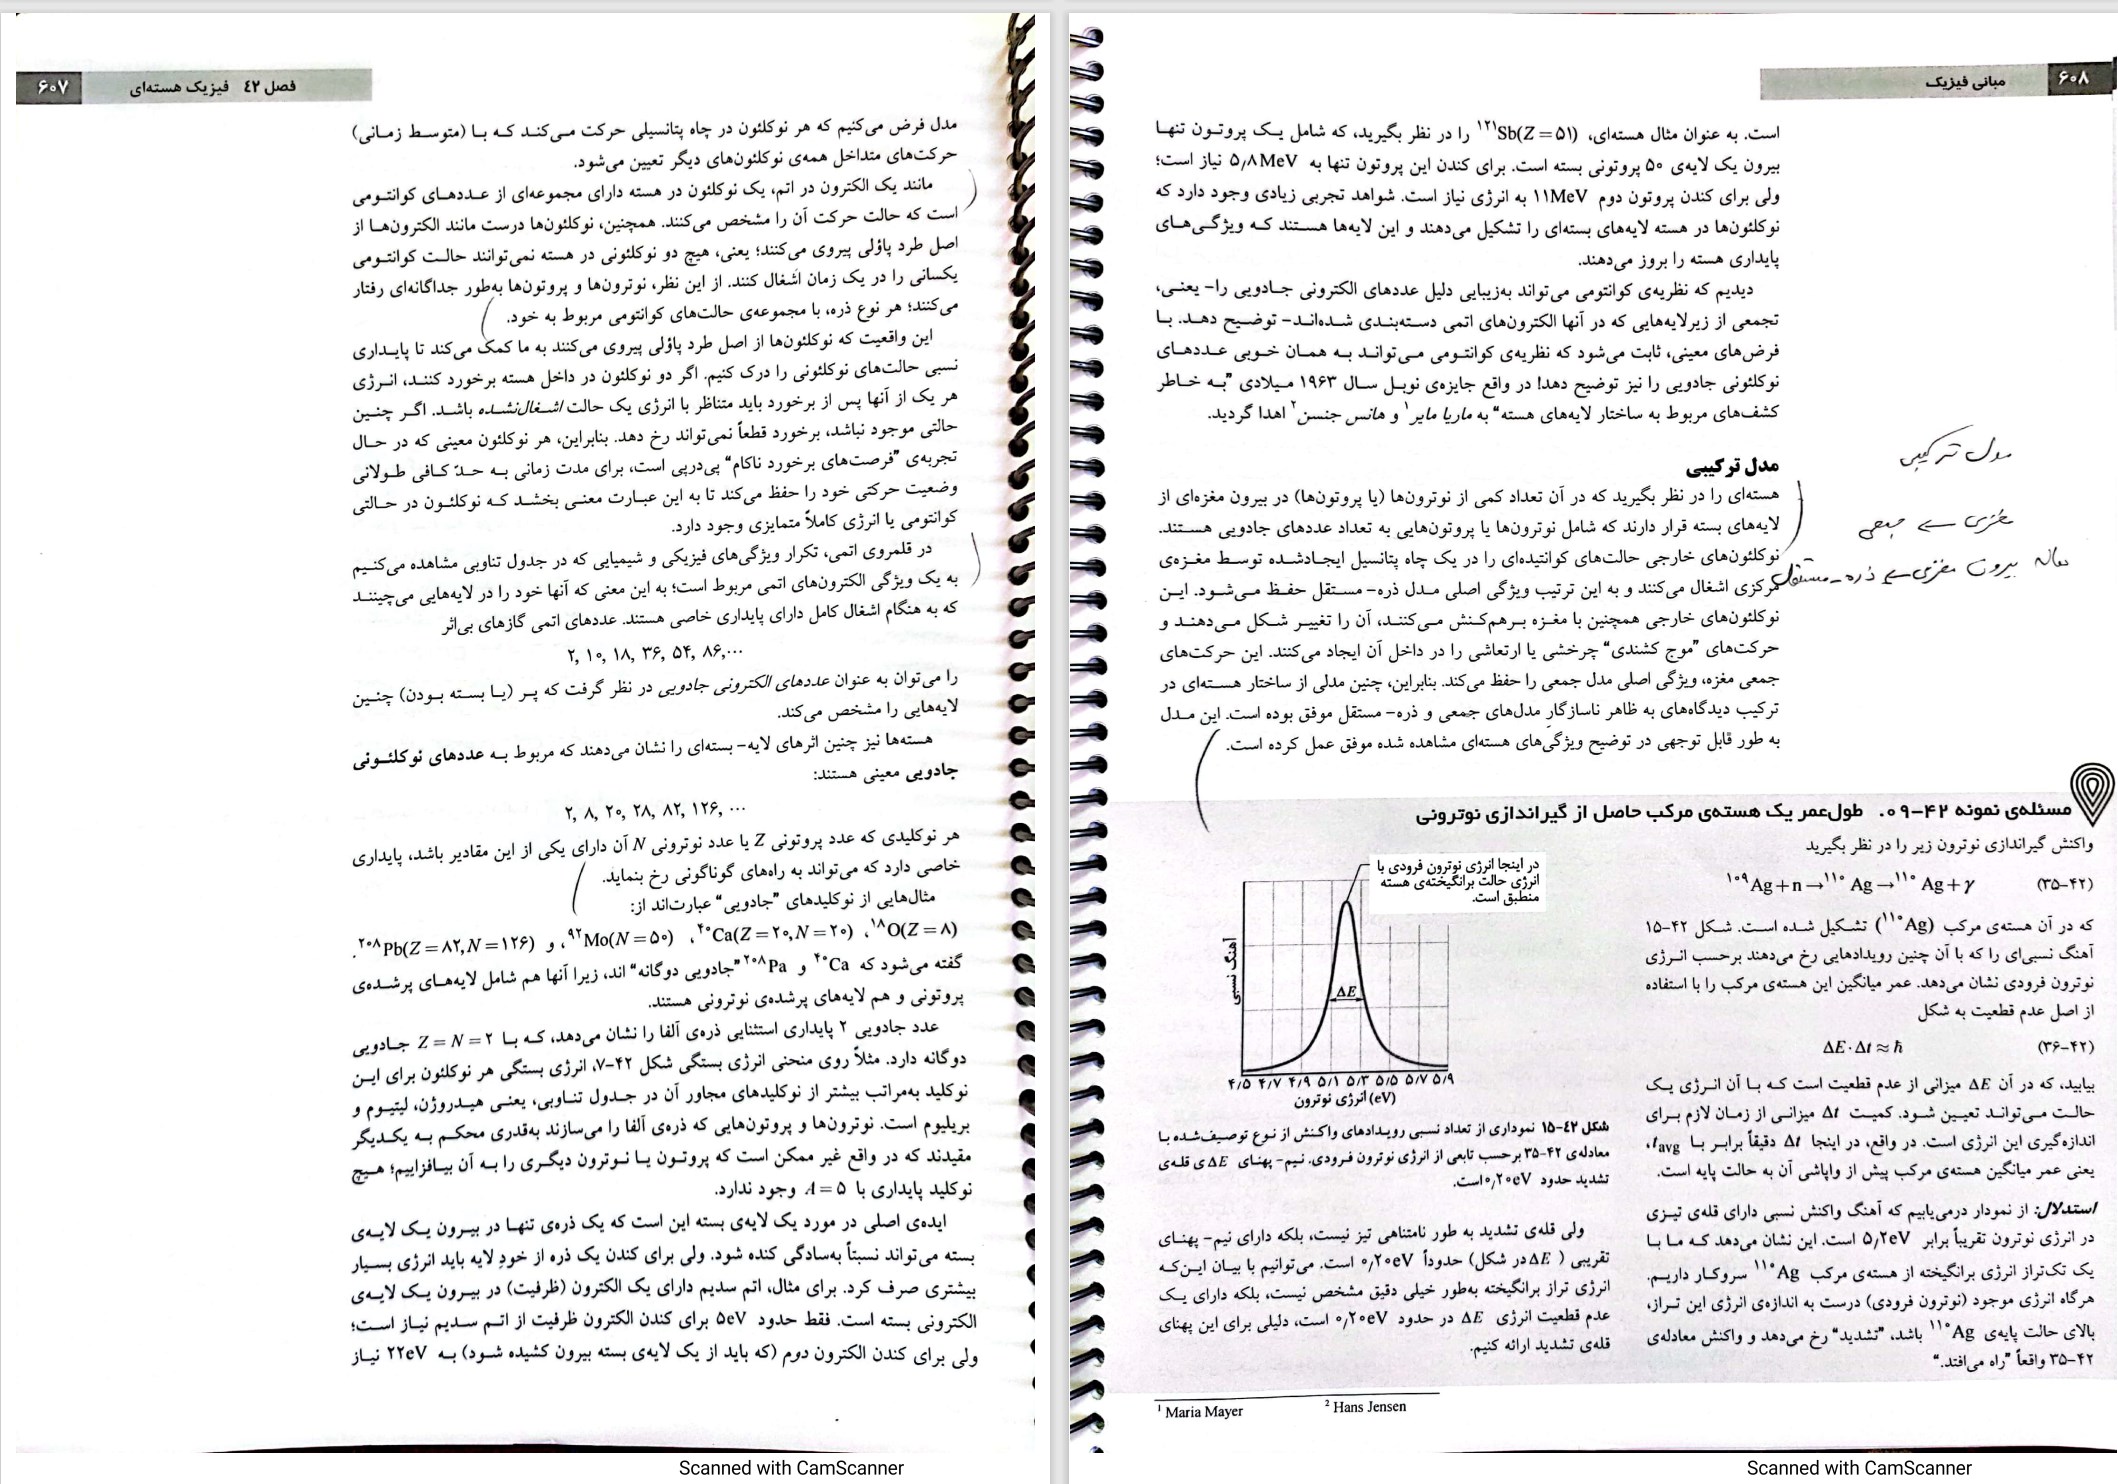 ۶۰۷
فصل ۴۲ فیزیک هسته‌ای
مدل فرض می‌کنیم که هر نوکلئون در چاه پتانسیلی حرکت می‌کند که با (متوسط زمانی)
حرکت‌های متداخل همه‌ی نوکلئون‌های دیگر تعیین می‌شود.
مانند یک الکترون در اتم، یک نوکلئون در هسته دارای مجموعه‌ای از عددهای کوانتومی
است که حالت حرکت آن را مشخص می‌کنند. همچنین، نوکلئون‌ها درست مانند الکترون‌ها از
اصل طرد پاؤلی پیروی می‌کنند؛ یعنی، هیچ دو نوکلئونی در هسته نمی‌توانند حالت کوانتومی
یکسانی را در یک زمان اشغال کنند. از این نظر، نوترون‌ها و پروتون‌ها به‌طور جداگانه‌ای رفتار
می‌کنند؛ هر نوع ذره، با مجموعه‌ی حالت‌های کوانتومی مربوط به خود.
این واقعیت که نوکلئون‌ها از اصل طرد پاؤلی پیروی می‌کنند به ما کمک می‌کند تا پایداری
نسبی حالت‌های نوکلئونی را درک کنیم. اگر دو نوکلئون در داخل هسته برخورد کنند، انرژی
هر یک از آنها پس از برخورد باید متناظر با انرژی یک حالت اشغال‌نشده باشد. اگر چنین
حالتی موجود نباشد، برخورد قطعاً نمی‌تواند رخ دهد. بنابراین، هر نوکلئون معینی که در حال
تجربه‌ی "فرصت‌های برخورد ناکام" پی‌درپی است، برای مدت زمانی به حدّ کافی طولانی
وضعیت حرکتی خود را حفظ می‌کند تا به این عبارت معنی بخشد که نوکلئون در حالتی
کوانتومی یا انرژی کاملاً متمایزی وجود دارد.
در قلمروی اتمی، تکرار ویژگی‌های فیزیکی و شیمیایی که در جدول تناوبی مشاهده می‌کنیم
به یک ویژگی الکترون‌های اتمی مربوط است؛ به این معنی که آنها خود را در لایه‌هایی می‌چینند
که به هنگام اشغال کامل دارای پایداری خاصی هستند. عددهای اتمی گازهای بی‌اثر
۲, ۱۰, ۱۸, ۳۶, ۵۴, ۸۶,...
را می‌توان به عنوان عددهای الکترونی جادویی در نظر گرفت که پر (یا بسته بودن) چنین
لایه‌هایی را مشخص می‌کند.
هسته‌ها نیز چنین اثرهای لایه- بسته‌ای را نشان می‌دهند که مربوط به عددهای نوکلئونی
جادویی معینی هستند:
۲, ۸, ۲۰, ۲۸, ۸۲, ۱۲۶, ...
هر نوکلیدی که عدد پروتونی Z یا عدد نوترونی N آن دارای یکی از این مقادیر باشد، پایداری
خاصی دارد که می‌تواند به راه‌های گوناگونی رخ بنماید.
مثال‌هایی از نوکلیدهای "جادویی" عبارت‌اند از:
¹⁸O(Z=۸)، ⁴⁰Ca(Z=۲۰,N=۲۰)، ⁹²Mo(N=۵۰)، و ²⁰⁸Pb(Z=۸۲,N=۱۲۶).
گفته می‌شود که ⁴⁰Ca و ²⁰⁸Pa "جادویی دوگانه" اند، زیرا آنها هم شامل لایه‌های پرشده‌ی
پروتونی و هم لایه‌های پرشده‌ی نوترونی هستند.
عدد جادویی ۲ پایداری استثنایی ذره‌ی آلفا را نشان می‌دهد، که با Z = N = ۲ جادویی
دوگانه دارد. مثلاً روی منحنی انرژی بستگی شکل ۴۲-۷، انرژی بستگی هر نوکلئون برای این
نوکلید به‌مراتب بیشتر از نوکلیدهای مجاور آن در جدول تناوبی، یعنی هیدروژن، لیتیوم و
بریلیوم است. نوترون‌ها و پروتون‌هایی که ذره‌ی آلفا را می‌سازند به‌قدری محکم به یکدیگر
مقیدند که در واقع غیر ممکن است که پروتون یا نوترون دیگری را به آن بیافزاییم؛ هیچ
نوکلید پایداری با A = ۵ وجود ندارد.
ایده‌ی اصلی در مورد یک لایه‌ی بسته این است که یک ذره‌ی تنها در بیرون یک لایه‌ی
بسته می‌تواند نسبتاً به‌سادگی کنده شود. ولی برای کندن یک ذره از خودِ لایه باید انرژی بسیار
بیشتری صرف کرد. برای مثال، اتم سدیم دارای یک الکترون (ظرفیت) در بیرون یک لایه‌ی
الکترونی بسته است. فقط حدود ۵eV برای کندن الکترون ظرفیت از اتم سدیم نیاز است؛
ولی برای کندن الکترون دوم (که باید از یک لایه‌ی بسته بیرون کشیده شود) به ۲۲eV نیاز
Scanned with CamScanner
۶۰۸
مبانی فیزیک
است. به عنوان مثال هسته‌ای، ¹²¹Sb(Z=۵۱) را در نظر بگیرید، که شامل یک پروتون تنها
بیرون یک لایه‌ی ۵۰ پروتونی بسته است. برای کندن این پروتون تنها به ۵٫۸MeV نیاز است؛
ولی برای کندن پروتون دوم ۱۱MeV به انرژی نیاز است. شواهد تجربی زیادی وجود دارد که
نوکلئون‌ها در هسته لایه‌های بسته‌ای را تشکیل می‌دهند و این لایه‌ها هستند که ویژگی‌های
پایداری هسته را بروز می‌دهند.
دیدیم که نظریه‌ی کوانتومی می‌تواند به‌زیبایی دلیل عددهای الکترونی جادویی را- یعنی،
تجمعی از زیرلایه‌هایی که در آنها الکترون‌های اتمی دسته‌بندی شده‌اند- توضیح دهد. با
فرض‌های معینی، ثابت می‌شود که نظریه‌ی کوانتومی می‌تواند به همان خوبی عددهای
نوکلئونی جادویی را نیز توضیح دهد! در واقع جایزه‌ی نوبل سال ۱۹۶۳ میلادی "به خاطر
کشف‌های مربوط به ساختار لایه‌های هسته" به ماریا مایر¹ و هانس جنسن² اهدا گردید.
مدل ترکیبی
مدل ترکیبی
هسته‌ای را در نظر بگیرید که در آن تعداد کمی از نوترون‌ها (یا پروتون‌ها) در بیرون مغزه‌ای از
لایه‌های بسته قرار دارند که شامل نوترون‌ها یا پروتون‌هایی به تعداد عددهای جادویی هستند.
مغزی ← جمعی
نوکلئون‌های خارجی حالت‌های کوانتیده‌ای را در یک چاه پتانسیل ایجادشده توسط مغزه‌ی
بیرون مغزی ← ذره-مستقل
مرکزی اشغال می‌کنند و به این ترتیب ویژگی اصلی مدل ذره- مستقل حفظ می‌شود. این
نوکلئون‌های خارجی همچنین با مغزه برهم‌کنش می‌کنند، آن را تغییر شکل می‌دهند و
حرکت‌های "موج کشندی" چرخشی یا ارتعاشی را در داخل آن ایجاد می‌کنند. این حرکت‌های
جمعی مغزه، ویژگی اصلی مدل جمعی را حفظ می‌کند. بنابراین، چنین مدلی از ساختار هسته‌ای در
ترکیب دیدگاه‌های به ظاهر ناسازگار مدل‌های جمعی و ذره- مستقل موفق بوده است. این مدل
به طور قابل توجهی در توضیح ویژگی‌های هسته‌ای مشاهده شده موفق عمل کرده است.
مسئله‌ی نمونه ۴۲-۰۹. طول‌عمر یک هسته‌ی مرکب حاصل از گیراندازی نوترونی
واکنش گیراندازی نوترون زیر را در نظر بگیرید
¹⁰⁹Ag+n→¹¹⁰Ag→¹¹⁰Ag+γ (۴۲-۳۵)
که در آن هسته‌ی مرکب (¹¹⁰Ag) تشکیل شده است. شکل ۴۲-۱۵
آهنگ نسبی‌ای را که با آن چنین رویدادهایی رخ می‌دهند برحسب انرژی
نوترون فرودی نشان می‌دهد. عمر میانگین این هسته‌ی مرکب را با استفاده
از اصل عدم قطعیت به شکل
ΔE·Δt≈ħ (۴۲-۳۶)
بیابید، که در آن ΔE میزانی از عدم قطعیت است که با آن انرژی یک
حالت می‌تواند تعیین شود. کمیت Δt میزانی از زمان لازم برای
اندازه‌گیری این انرژی است. در واقع، در اینجا Δt دقیقاً برابر با tavg،
یعنی عمر میانگین هسته‌ی مرکب پیش از واپاشی آن به حالت پایه است.
استدلال: از نمودار درمی‌یابیم که آهنگ واکنش نسبی دارای قله‌ی تیزی
در انرژی نوترون تقریباً برابر ۵٫۲eV است. این نشان می‌دهد که ما با
یک تک‌تراز انرژی برانگیخته از هسته‌ی مرکب ¹¹⁰Ag سروکار داریم.
هرگاه انرژی موجود (نوترون فرودی) درست به اندازه‌ی انرژی این تراز،
بالای حالت پایه‌ی ¹¹⁰Ag باشد، "تشدید" رخ می‌دهد و واکنش معادله‌ی
۴۲-۳۵ واقعاً "راه می‌افتد."
در اینجا انرژی نوترون فرودی با
انرژی حالت برانگیخته‌ی هسته
منطبق است.
آهنگ نسبی
ΔE
۴٫۵ ۴٫۷ ۴٫۹ ۵٫۱ ۵٫۳ ۵٫۵ ۵٫۷ ۵٫۹
انرژی نوترون (eV)
شکل ۴۲-۱۵ نموداری از تعداد نسبی رویدادهای واکنش از نوع توصیف‌شده با
معادله‌ی ۴۲-۳۵ برحسب تابعی از انرژی نوترون فرودی. نیم- پهنای ΔE ی قله‌ی
تشدید حدود ۰٫۲۰eV است.
ولی قله‌ی تشدید به طور نامتناهی تیز نیست، بلکه دارای نیم- پهنای
تقریبی ( ΔE در شکل) حدوداً ۰٫۲۰eV است. می‌توانیم با بیان این‌که
انرژی تراز برانگیخته به‌طور خیلی دقیق مشخص نیست، بلکه دارای یک
عدم قطعیت انرژی ΔE در حدود ۰٫۲۰eV است، دلیلی برای این پهنای
قله‌ی تشدید ارائه کنیم.
¹ Maria Mayer
² Hans Jensen
Scanned with CamScanner